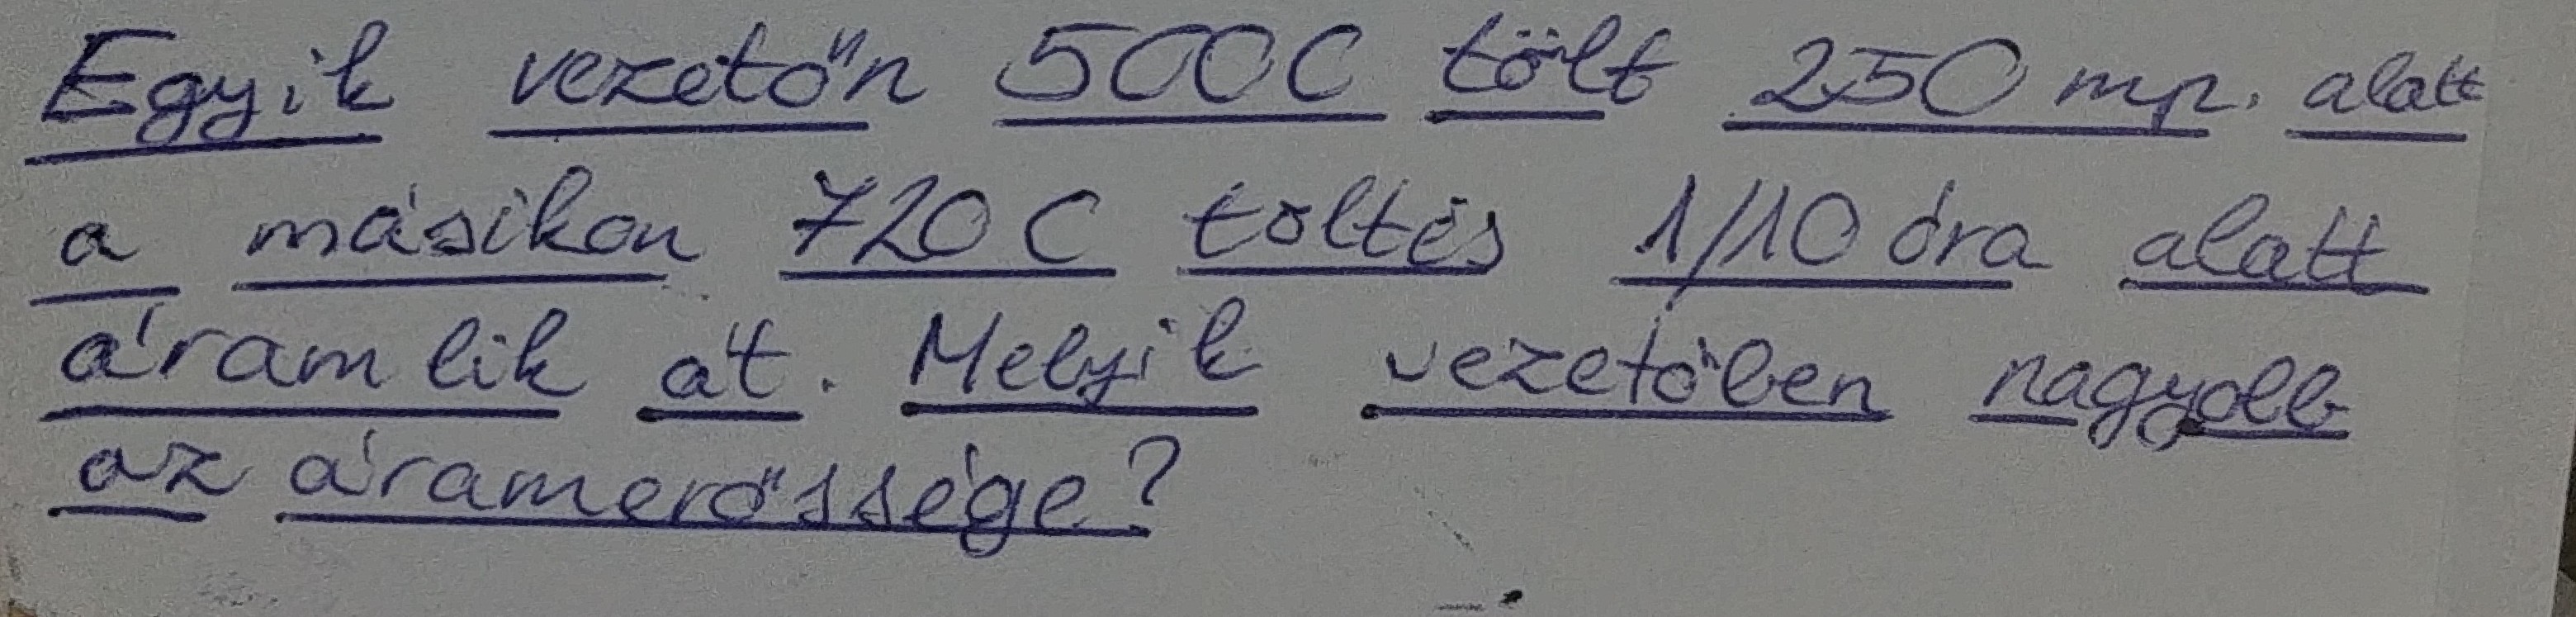 Egyik vezetőn 500C tölt 250 mp. alatt
a másikon 720 C töltés 1/10 óra alatt
áramlik át. Melyik vezetőben nagyobb
az áramerőssége?